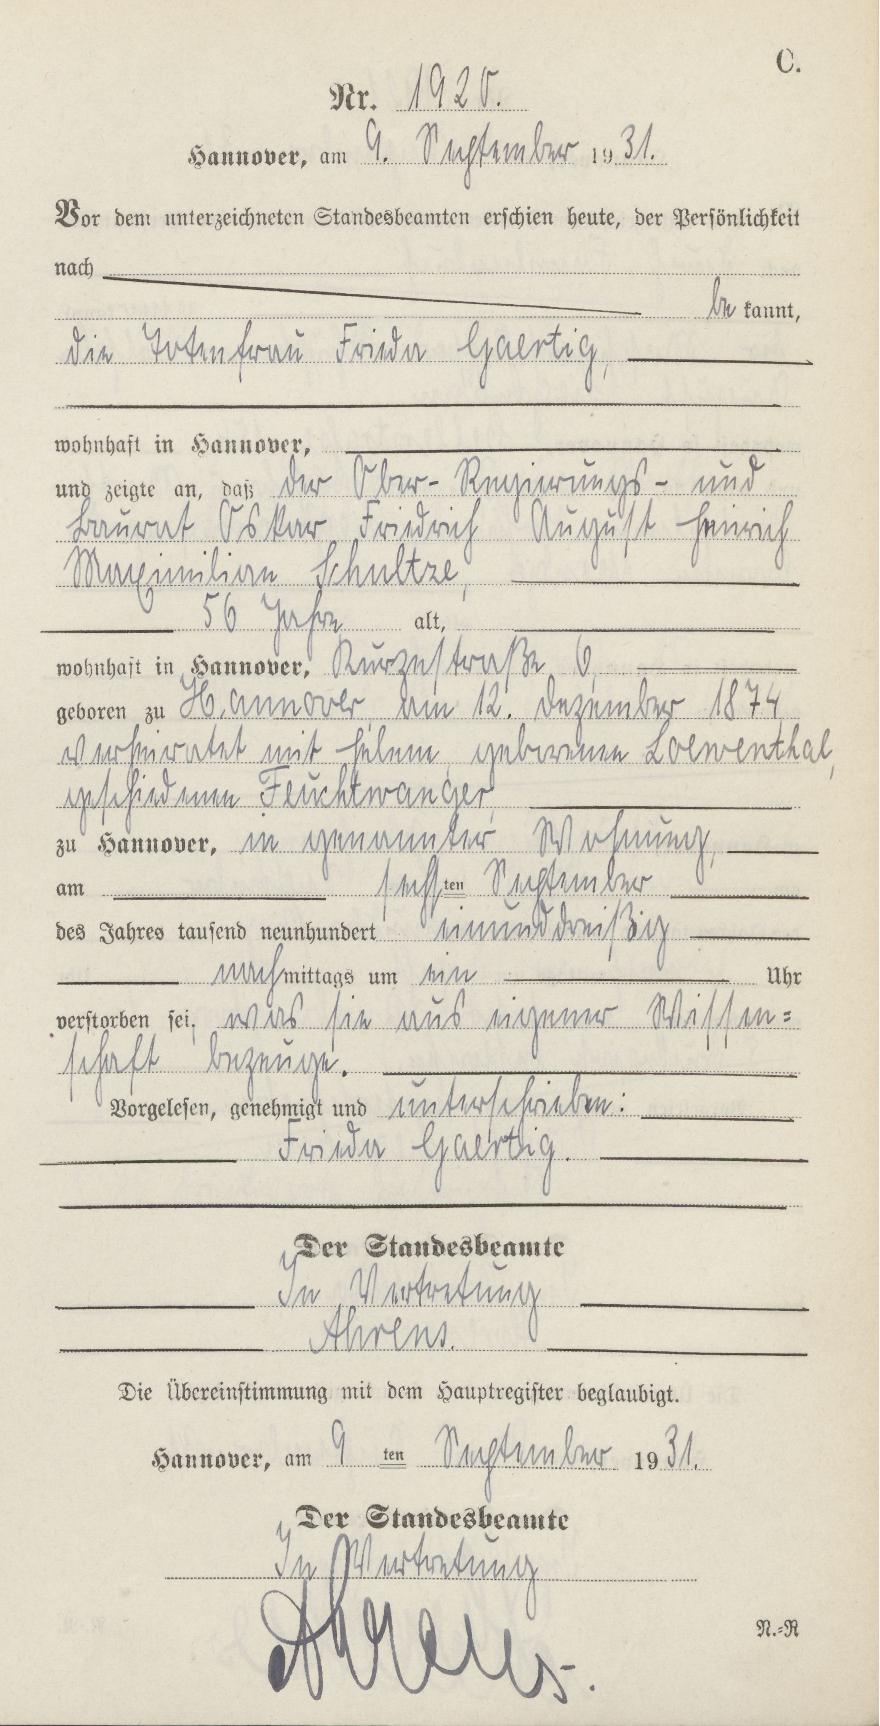 C.
Nr. 1920.
Hannover, am 9. September 1931.
Vor dem unterzeichneten Standesbeamten erschien heute, der Persönlichkeit
nach
be kannt,
die Totenfrau Frieda Gaertig,
wohnhaft in Hannover,
und zeigte an, daß der Ober-Regierungs- und
Baurat Oskar Friedrich August Heinrich
Maximilian Schultze,
56 Jahre alt,
wohnhaft in Hannover, Kurzestraße 6,
geboren zu Hannover am 12. Dezember 1874
verheiratet mit Helene, geborenen Loewenthal,
geschiedenen Feuchtwanger,
zu Hannover, in genannter Wohnung,
am sechsten September
des Jahres tausend neunhundert einunddreißig
nachmittags um ein Uhr
verstorben sei, was sie aus eigener Wissen=
schaft bezeuge.
Vorgelesen, genehmigt und unterschrieben:
Frieda Gaertig.
Der Standesbeamte
In Vertretung
Ahrens.
Die Übereinstimmung mit dem Hauptregister beglaubigt.
Hannover, am 9 ten September 1931.
Der Standesbeamte
In Vertretung
Ahrens.
N.=R